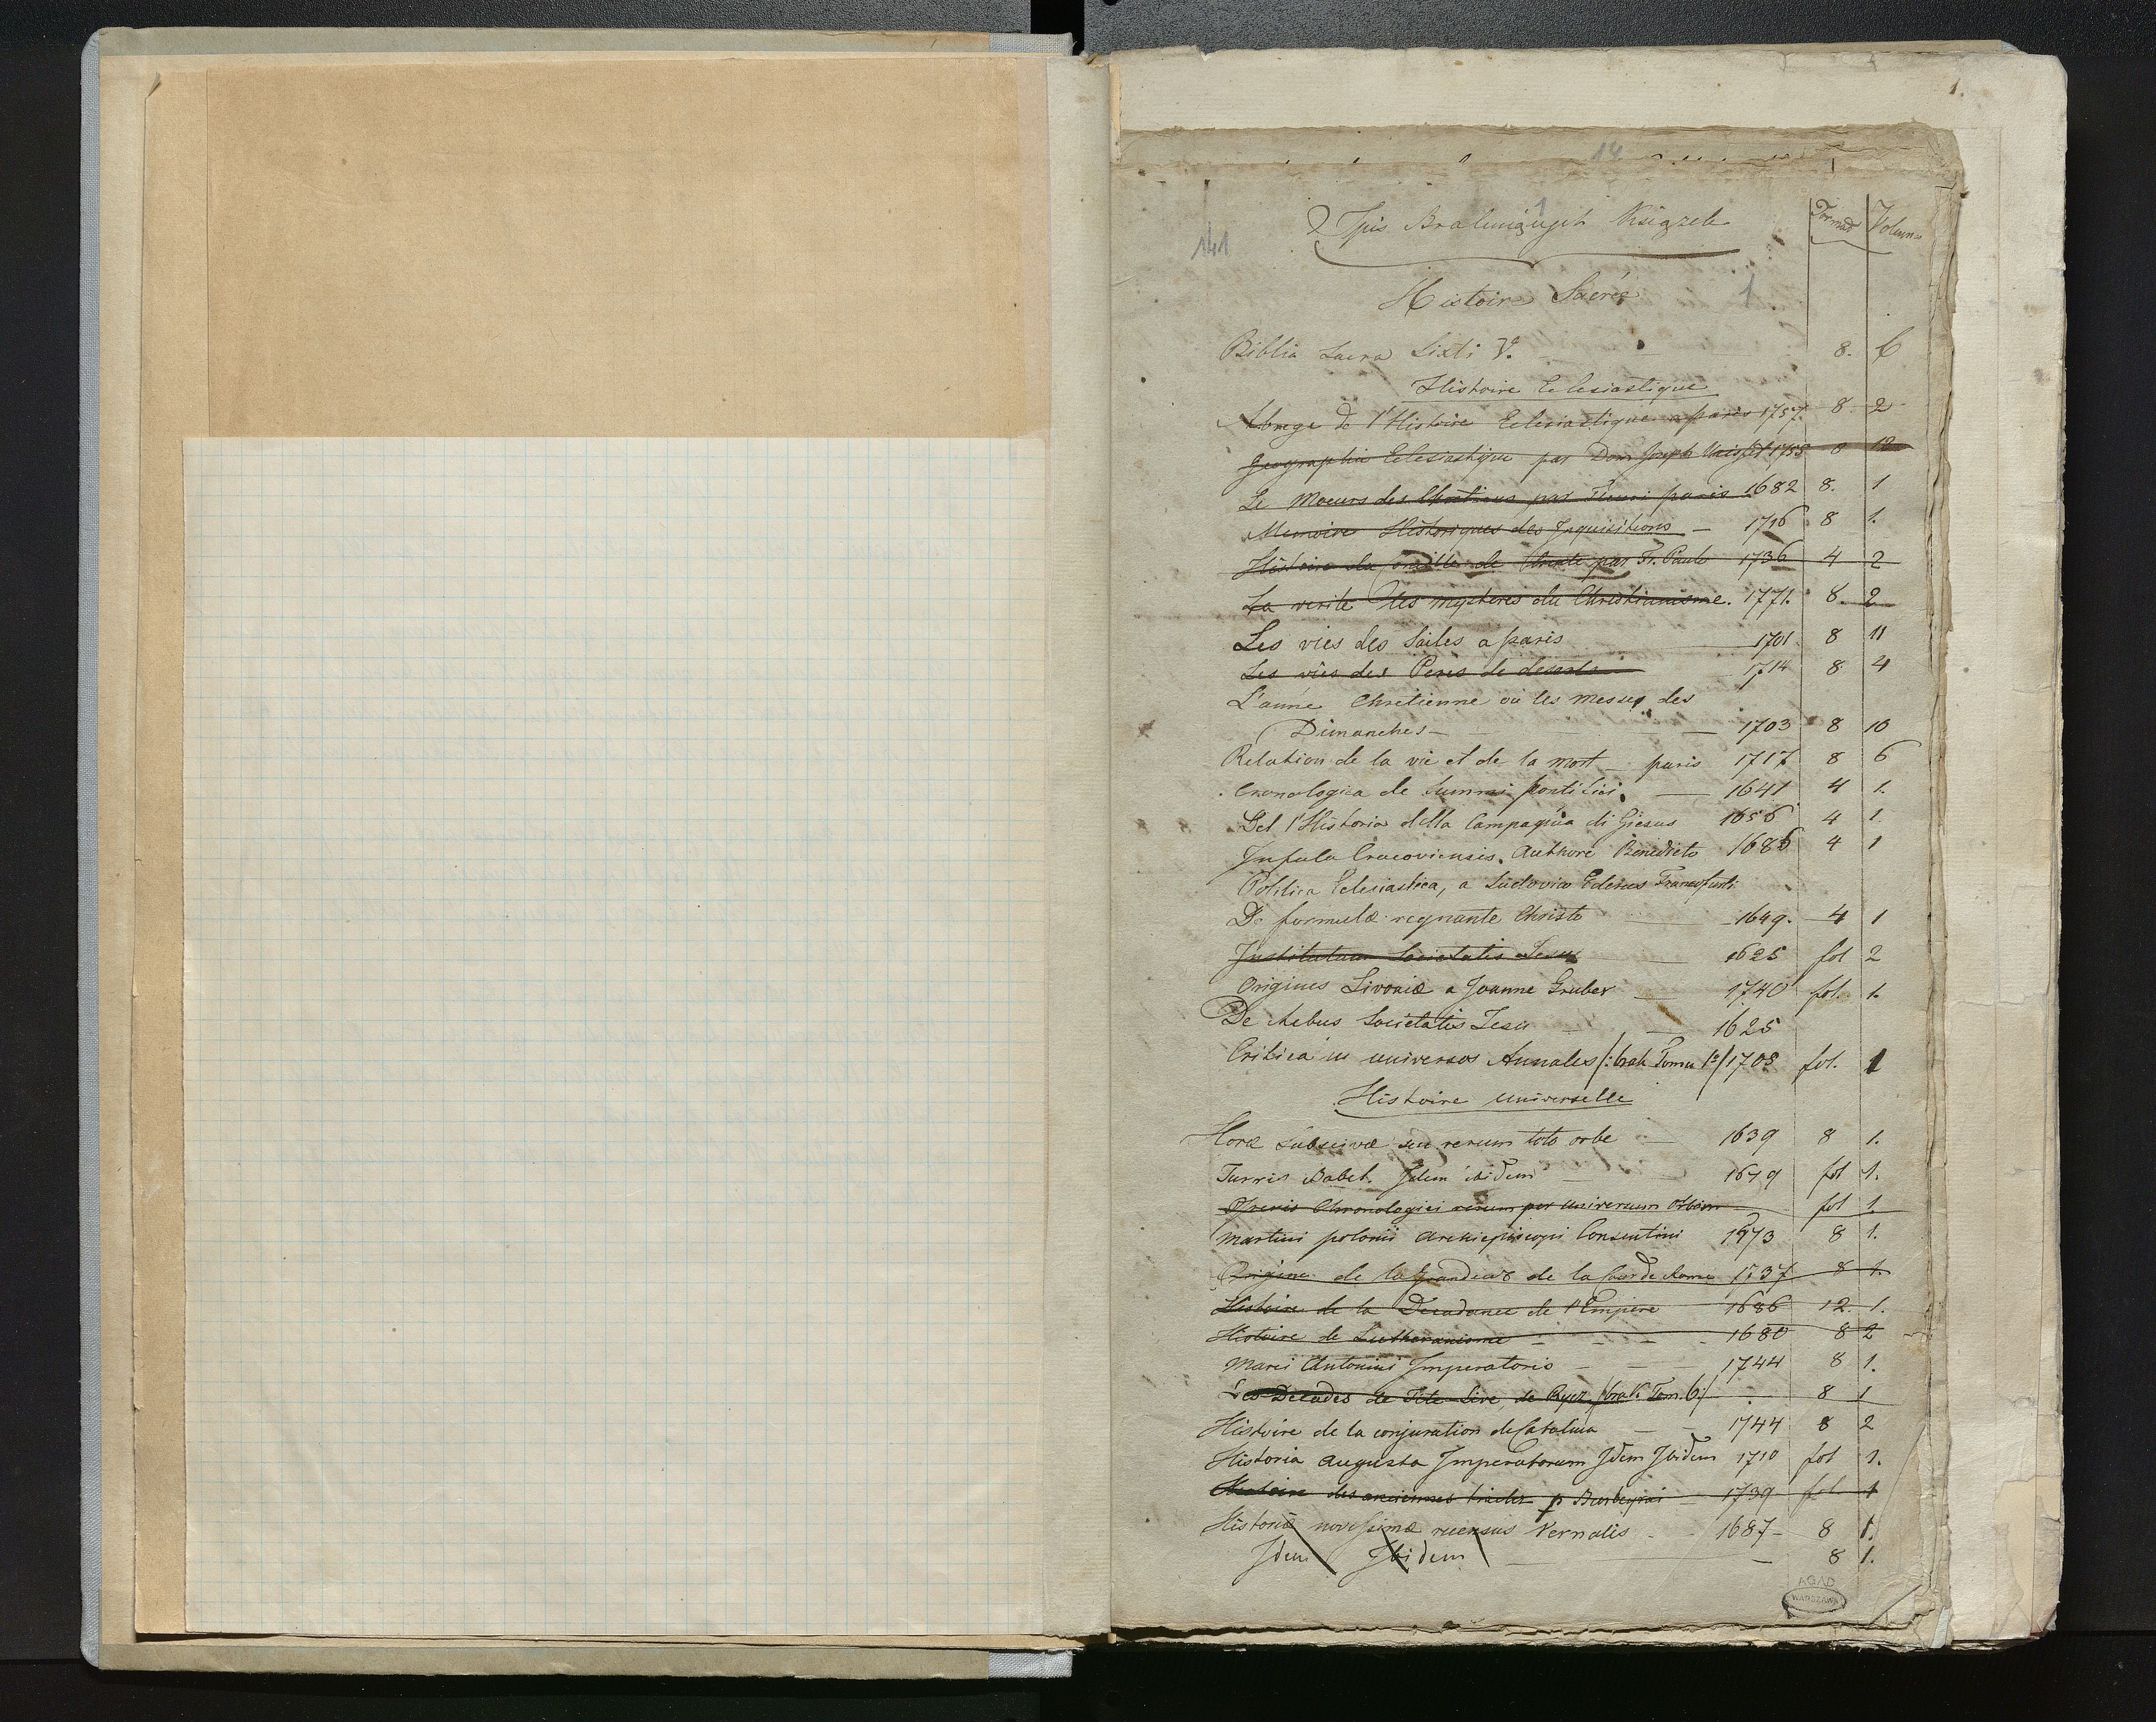 1.
14
Spis Brakuiących Książek
Format
Volumen
141
1
Histoire Sacrée
1
Biblia Sacra Sixti V. 8. 6
Histoire Eclesiastique
Abrege de l'Histoire Eclesiastique a paris 1757. 8 2
Geographie Eclesiastique par Dom Joseph 1755 8 12
Le Moeurs des Chretiens par Fleuri paris 1682 8. 1
Memoire Historiques des Inquisitions — 1716 8 1.
Histoire du de Trente par Fr. Paulo 1736 4 2
La verite des mysteres du Christianisme. 1771. 8. 2
Les vies des Saites a paris 1701. 8 11
Les vies des Peres de deserts 1714 8 4
L'anné Chretienne ou les messes des
Dimanches — 1703 8 10
Relation de la vie et de la mort — paris 1717 8 6
Cronologica de Summi pontifici. — 1641 4 1.
Del l'Historia della Campagnia di Giesus 1656 4 1.
Infula Cracoviensis. Authore Benedicto 1686 4 1
Politica Eclesiastica, a Ludovico Ederus Francofurti
De formulæ regnante Christo 1649. 4 1
Institutum Societatis Jesu — 1625 fol 2
Origines Livoniæ a Joanne Gruber — 1740 fol. 1.
De Rebus Societatis Jesu — 1625
Critica in universos Annales /: brak Tomu 1º/ 1705 fol. 1
Histoire universelle
Horæ subscivæ seu rerum toto orbe — 1639 8 1.
Turris Babel. Idem ibidem — 1679 fol 1.
Operis Chronologici rerum per universum Orbem fol 1.
Martini polonii Archiepiscopi Consentini 1573 8 1.
Origine de la Grandeur de la Cour de Rome 1737 8 1.
Histoire de la Decadence de l'Empire 1686 12. 1.
Histoire de Lutheranisme 1680 8 2
Marci Antonini Imperatoris — — 1744 8 1.
Les Decades de Tite Live, de Ryer /brak Tom. 6:/ 8 1
Histoire de la conjuration de Catalina — 1744 8 2
Historia Augusta Imperatorum Idem Ibidem 1710 fol 1.
Histoire des anciennes traitez p Barbeyrai — 1739 fol 1
Historiæ novissimæ recensus Vernalis — 1687 — 8 1.
Idem Ibidem — 8 1.
AGAD
WARSZAWA